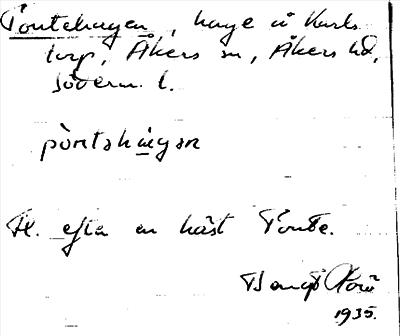 Pontehagen, hage å Karls-
torp, Åkers sn, Åkers hd,
Söderm. l.
pòntəhàgən
H. efter en häst Ponte.
Bengt
1935.